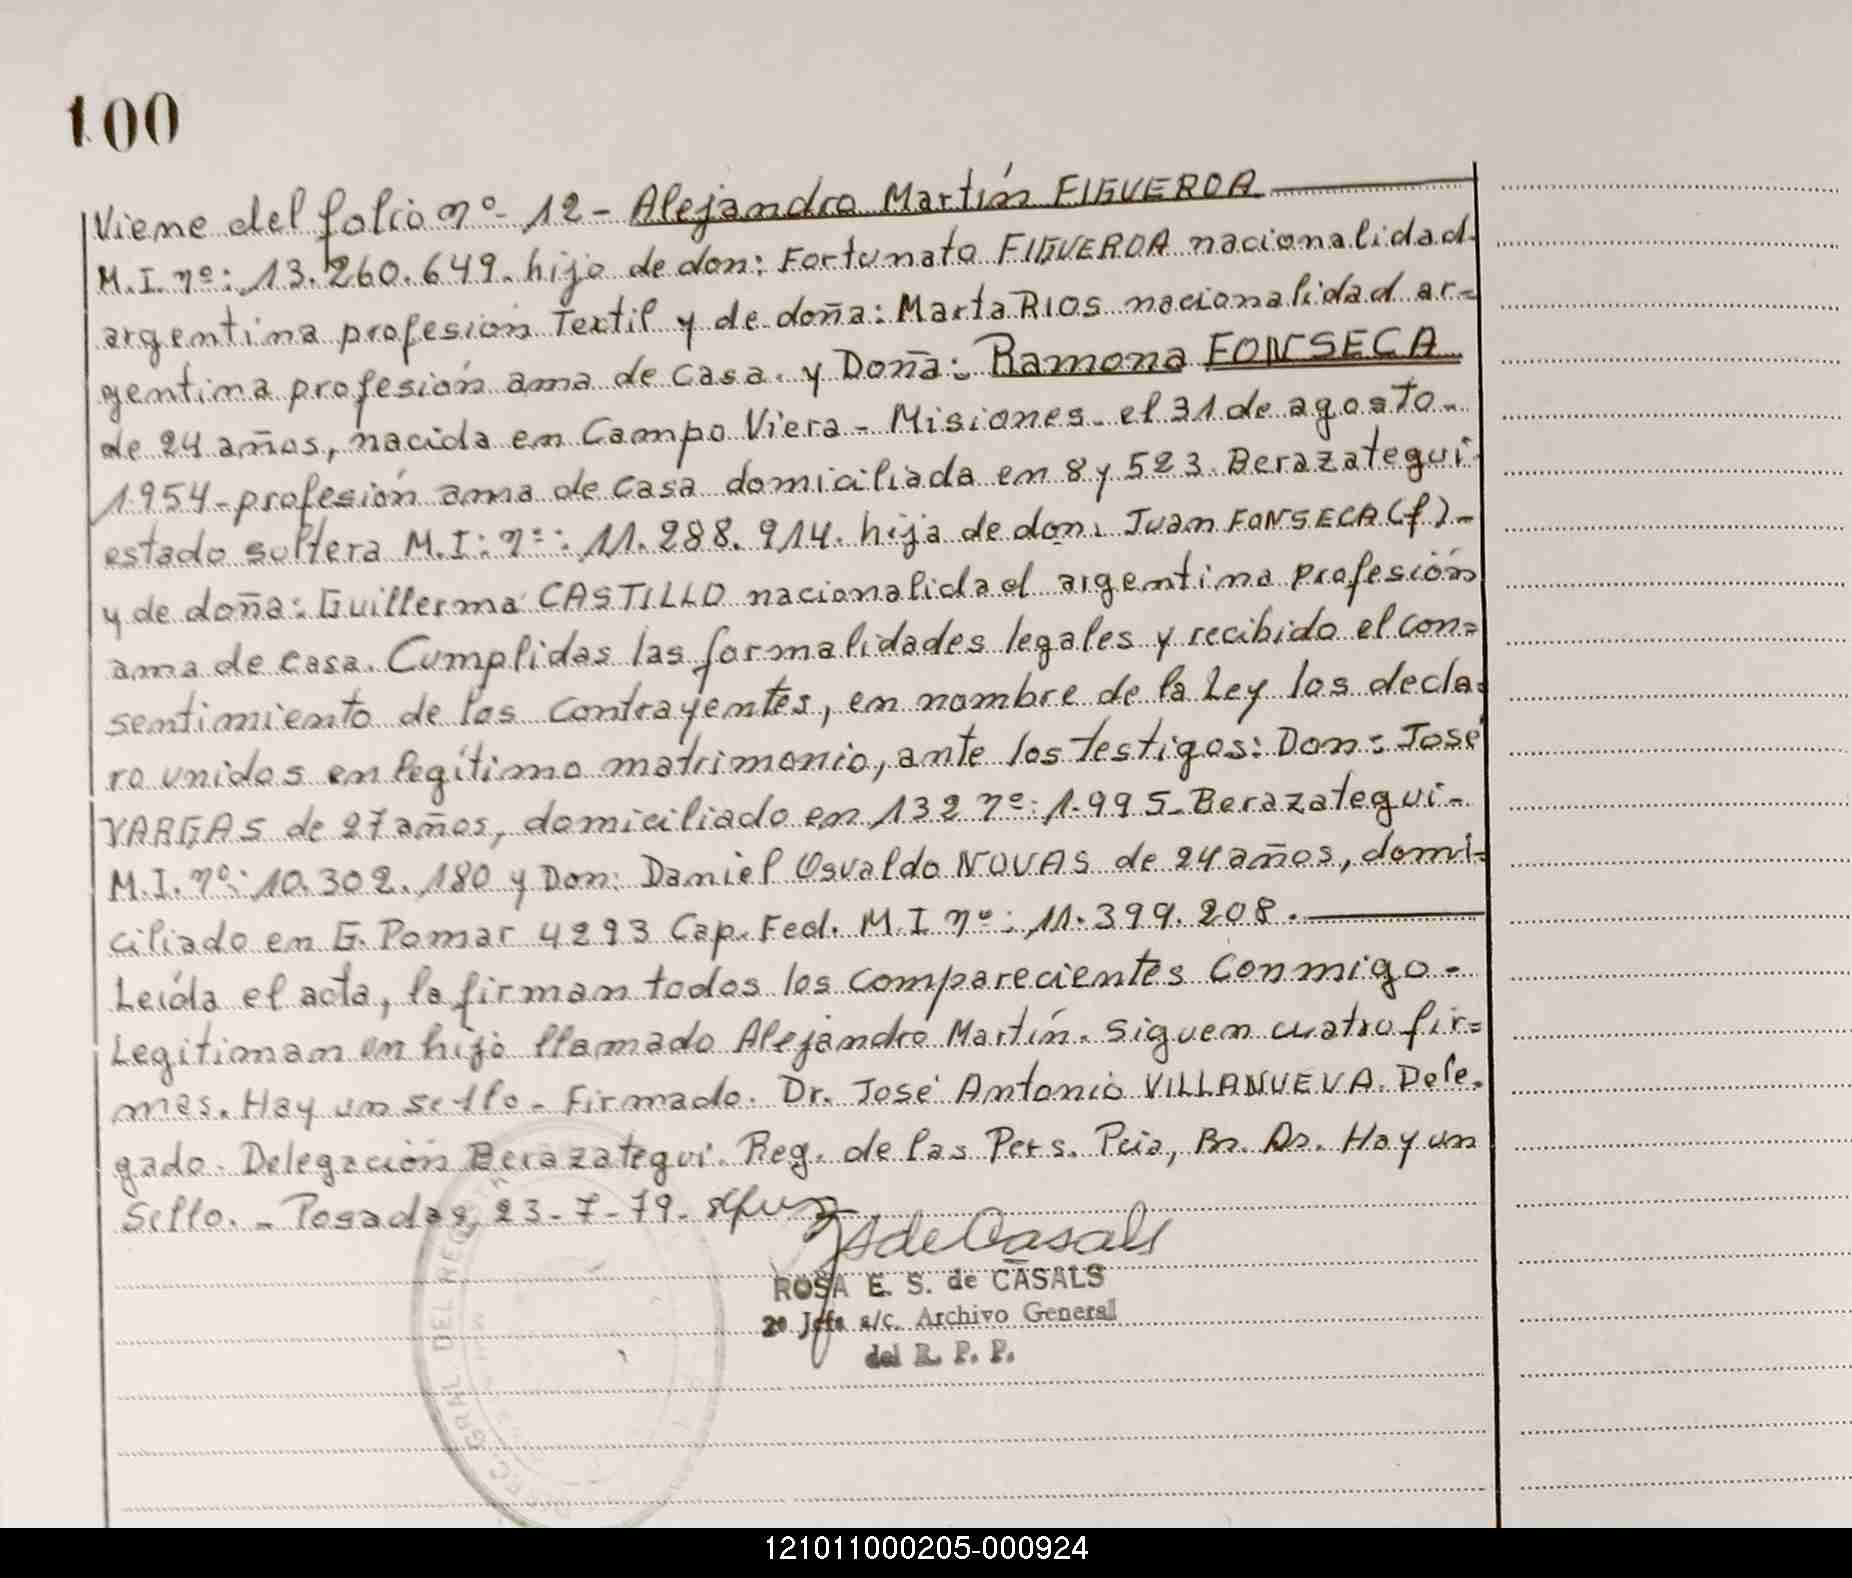 100
Viene del folio nº 12 - Alejandro Martín FIGUEROA
M.I. nº: 13.260.649. hijo de don: Fortunato FIGUEROA nacionalidad
argentina profesión Textil y de doña: Marta RIOS nacionalidad ar=
gentina profesión ama de casa. y Doña: Ramona FONSECA
de 24 años, nacida en Campo Viera - Misiones - el 31 de agosto -
1.954 - profesión ama de casa domiciliada en 8 y 523. Berazategui.
estado soltera M.I: nº: 11.288.914. hija de don: Juan FONSECA (f) -
y de doña: Guillerma CASTILLO nacionalidad argentina profesión
ama de casa. Cumplidas las formalidades legales y recibido el con=
sentimiento de los contrayentes, en nombre de la Ley los decla=
ro unidos en legítimo matrimonio, ante los testigos: Don: José
VARGAS de 27 años, domiciliado en 132 nº: 1.995 - Berazategui -
M.I. nº: 10.302.180 y Don: Daniel Osvaldo NOVAS de 24 años, domi=
ciliado en G. Pomar 4293 Cap. Fed. M.I nº: 11.399.208.
Leída el acta, la firman todos los comparecientes conmigo -
Legitiman un hijo llamado Alejandro Martín. Siguen cuatro fir=
mas. Hay un sello - Firmado. Dr. José Antonio VILLANUEVA. Dele.
gado. Delegación Berazategui. Reg. de las Pers. Pcia, Bs. As. Hay un
Sello. - Posadas, 23-7-79.
de Casals
ROSA E. S. de CASALS
2º Jefe a/c. Archivo General
del R. P. P.
GRAL DEL REG
121011000205-000924